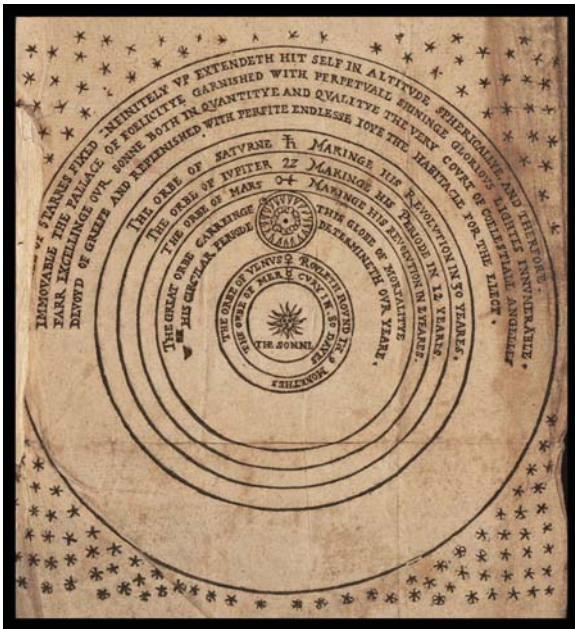 OF STARRES FIXED INFINITELY VP EXTENDETH HIT SELF IN ALTITVDE SPHERICALLYE, AND THERFORE
IMMOVABLE THE PALLACE OF FOELICITYE GARNISHED WITH PERPETVALL SHININGE GLORIOVS LIGHTES INNVMERABLE.
FARR EXCELLINGE OVR SONNE BOTH IN QVANTITYE AND QVALITYE THE VERY COVRT OF COELESTIALL ANGELLES
DEVOYD OF GREEFE AND REPLENISHED WITH PERFITE ENDLESSE IOYE THE HABITACLE FOR THE ELECT.
THE ORBE OF SATVRNE ♄ MAKINGE HIS REVOLVTION IN 30 YEARES.
THE ORBE OF IVPITER ♃ MAKINGE HIS PERIODE IN 12 YEARES.
THE ORBE OF MARS ♂ MAKINGE HIS REVOLVTION IN 2 YEARES.
THE GREAT ORBE CARREINGE THIS GLOBE OF MORTALITYE
HIS CIRCVLAR PERIODE DETERMINETH OVR YEARE.
THE ORBE OF VENVS ♀ ROVLETH ROVND IN 9 MONETHES
THE ORBE OF MERCVRY IN 80 DAYES
THE SONNE